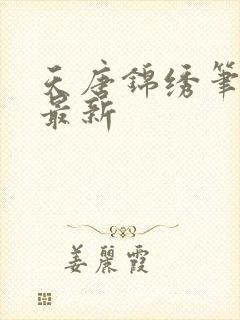 天唐錦绣筆
最新
姜麗霞